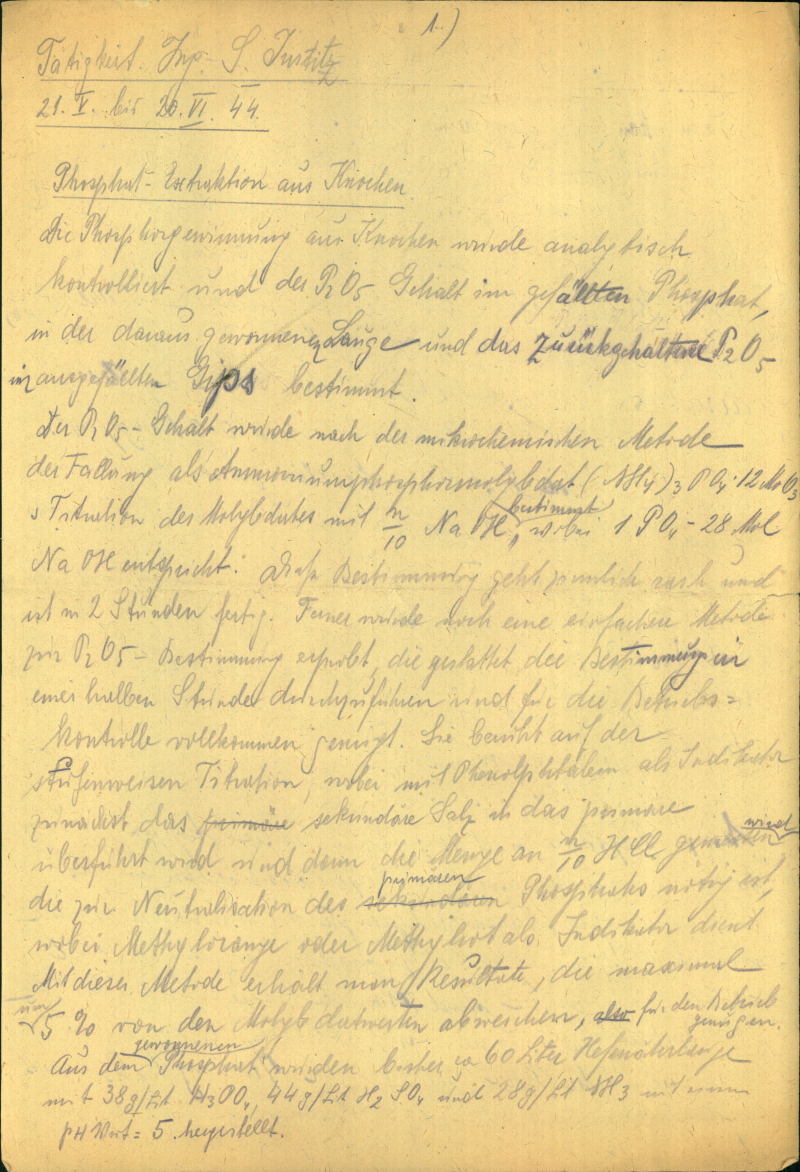 1.)
Tätigkeit. Ing. S. Justitz
21. V. bis 20. VI. 44.
Phosphat-Extraktion aus Knochen
Die Phosphorgewinnung aus Knochen wurde analytisch
kontrolliert und der P2O5 Gehalt im gefällten Phosphat,
in der daraus gewonnenen Lauge und das zurückgehaltene P2O5
im ausgefällten Gips bestimmt.
Der P2O5-Gehalt wurde nach der mikrochemischen Metode
der Fällung als Ammoniumphosphormolybdat (NH4)3 PO4·12MoO3
Titration des Molybdates mit n/10 NaOH bestimmt, wobei 1 PO4 - 28 Mol
NaOH entspricht. Diese Bestimmung geht ziemlich rasch und
ist in 2 Stunden fertig. Ferner wurde noch eine einfachere Metode
zur P2O5-Bestimmung erprobt, die gestattet die Bestimmung in
einer halben Stunde durchzuführen und für die Betriebs=
kontrolle vollkommen genügt. Sie beruht auf der
stufenweisen Titration, wobei mit Phenolphtalein als Indikator
zunächst das primäre sekundäre Salz in das primäre
überführt wird und dann die Menge an n/10 HCl gemessen wird
die zur Neutralisation des sekundären primären Phosphats nötig ist,
wobei Methylorange oder Methylrot als Indikator dient
Mit dieser Metode erhält man Resultate, die maximal
um 5 % von den Molybdatwerten abweichen, also für den Betrieb
genügen.
Aus dem gewonnenen Phosphat wurden bisher ca 60 Liter Hefenährlauge
mit 38g/Lit H3PO4, 44g/Lit H2SO4 und 28g/Lit NH3 mit einem
pH Wert = 5 hergestellt.